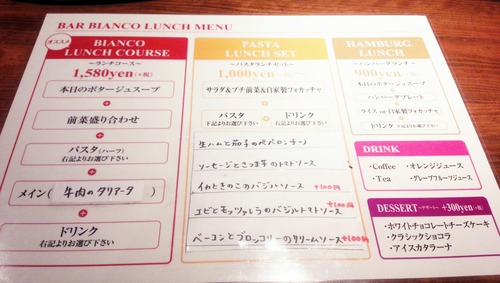 BAR BIANCO LUNCH MENU
オススメ
BIANCO
LUNCH COURSE
～ランチコース～
1,580yen(+税)
本日のポタージュスープ
+
前菜盛り合わせ
+
パスタ(ハーフ)
右記よりお選び下さい
+
メイン( 牛肉のタリアータ )
+
ドリンク
右記よりお選び下さい
PASTA
LUNCH SET
～パスタランチセット～
1,000yen
サラダ&プチ前菜&自家製フォカッチャ
+
パスタ
下記よりお選び下さい
+
ドリンク
右記よりお選び下さい
生ハムと茄子のペペロンチーノ
ソーセージとさつま芋のトマトソース
イカときのこのバジルソース +100円
エビとモッツァレラのバジルトマトソース +100円
ベーコンとブロッコリーのクリームソース +100円
HAMBURG
LUNCH
～ハンバーグランチ～
900yen
本日のポタージュスープ
+
ハンバーグプレート
+
ライス or 自家製フォカッチャ
+
ドリンク 下記よりお選び下さい
DRINK
・Coffee ・オレンジジュース
・Tea ・グレープフルーツジュース
DESSERT ～デザート～ +300yen(+税)
・ホワイトチョコレートチーズケーキ
・クラシックショコラ
・アイスカタラーナ